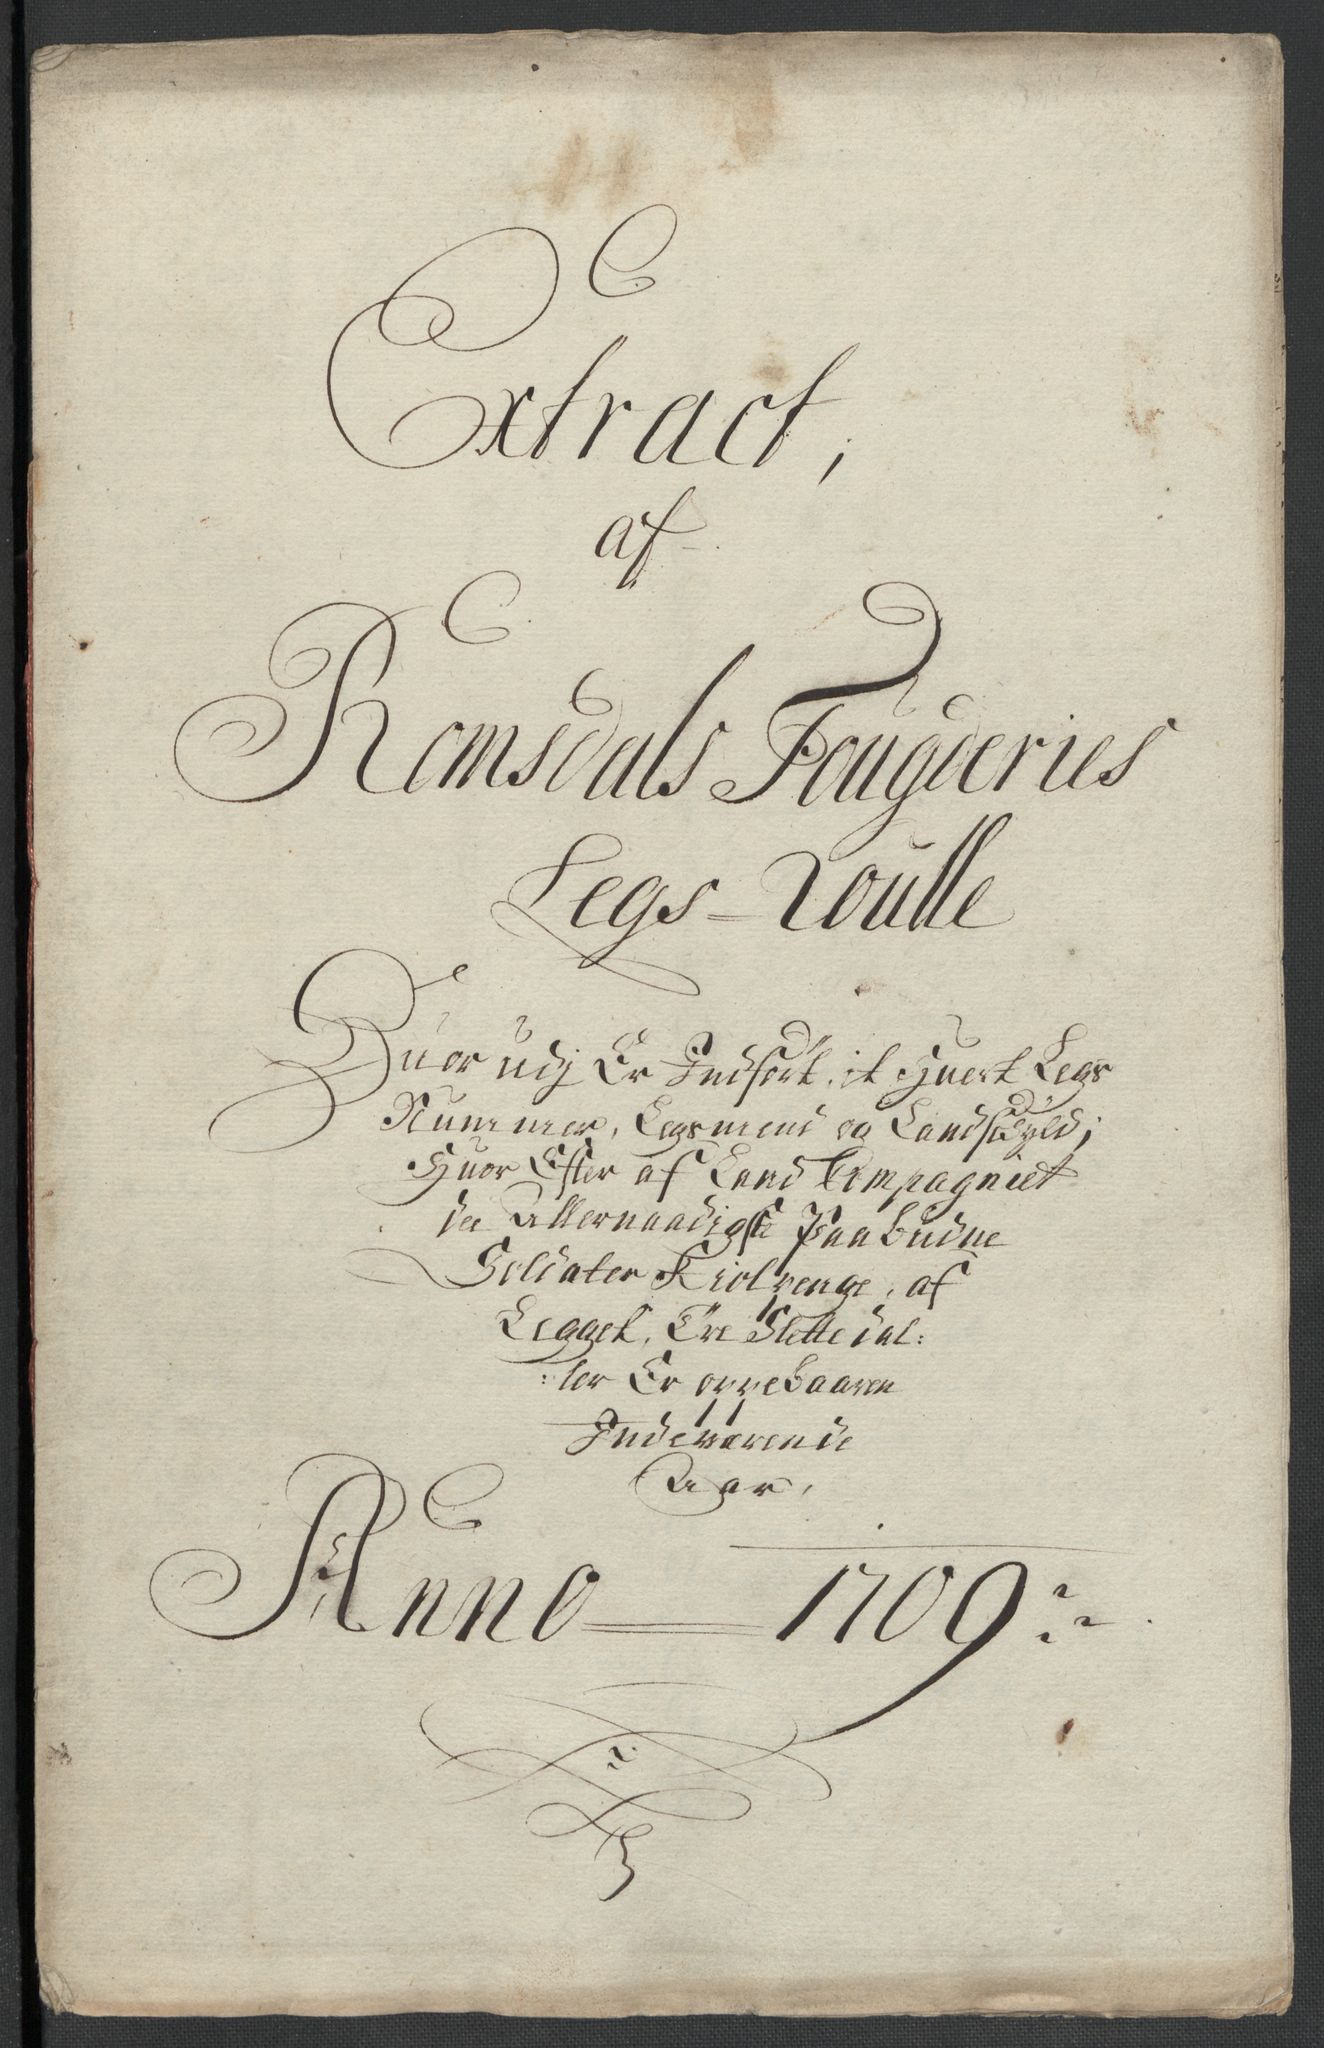 Extract,
af
Romsdals Fougderies
Legs-Roulle
Huor udj Er Indført, it Huert Legs
Nummer, Legsmend og Landskyld;
Huor Efter af Land Compagniet
de Allernaadigste Paabudne
Soldater Kiolpenge, af
Legget, Tre Slette dal:
:ler Er oppebaaren
Indeværende
Aar,
Anno 1709